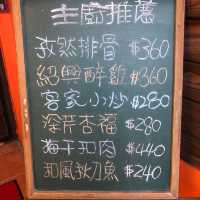 主廚推薦
孜然排骨 $360
紹興醉雞 $360
客家小炒 $280
深芹杏福 $280
海干扣肉 $440
和風秋刀魚 $240